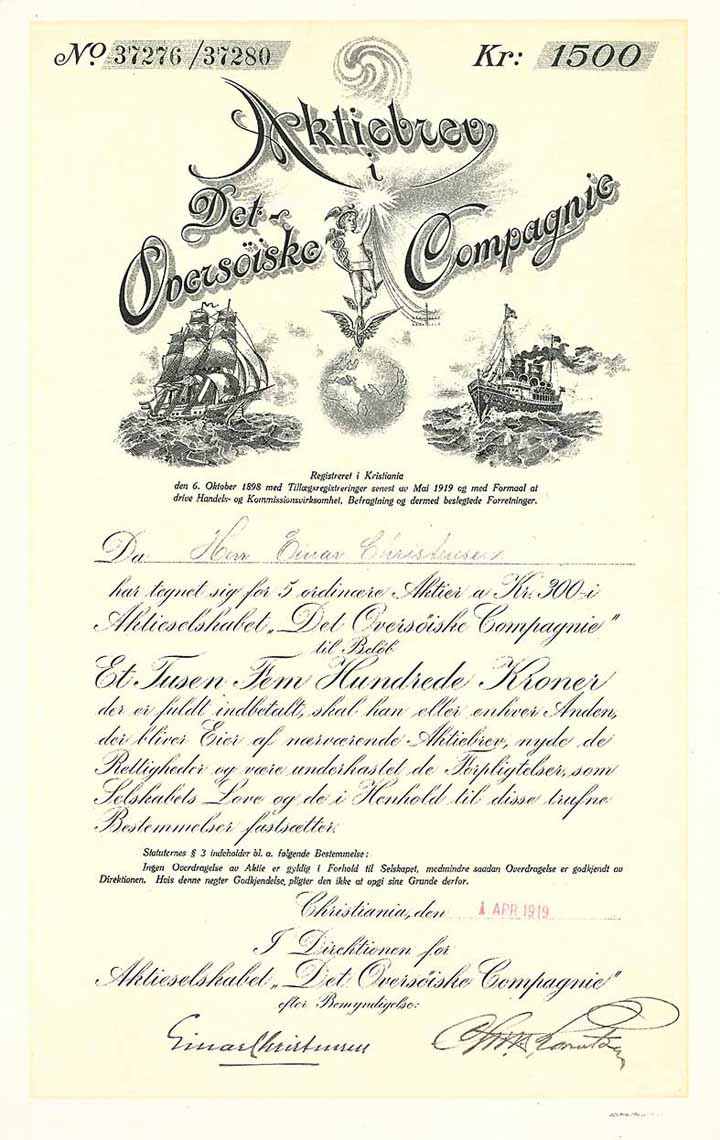 No 37276/37280
Kr: 1500
Aktiebrev
i
Det
Oversöiske Compagnie
Registreret i Kristiania
den 6. Oktober 1898 med Tillægsregistreringer senest av Mai 1919 og med Formaal at
drive Handels- og Kommissionsvirksomhet, Befragtning og dermed beslegtede Forretninger.
Da Herr Einar Christensen
har tegnet sig for 5 ordinære Aktier a Kr. 300- i
Aktieselskabet „Det Oversöiske Compagnie"
til Beløb
Et Tusen Fem Hundrede Kroner
der er fuldt indbetalt, skal han eller enhver Anden,
der bliver Eier af nærværende Aktiebrev, nyde de
Rettigheder og være underkastet de Forpligtelser, som
Selskabets Love og de i Henhold til disse trufne
Bestemmelser fastsætter.
Statuternes § 3 indeholder bl. a. følgende Bestemmelse:
Ingen Overdragelse av Aktie er gyldig i Forhold til Selskapet, medmindre saadan Overdragelse er godkjendt av
Direktionen. Hvis denne negter Godkjendelse, pligter den ikke at opgi sine Grunde derfor.
Christiania, den 1 APR 1919
I Direktionen for
Aktieselskabet „Det Oversöiske Compagnie"
efter Bemyndigelse:
Einar Christensen